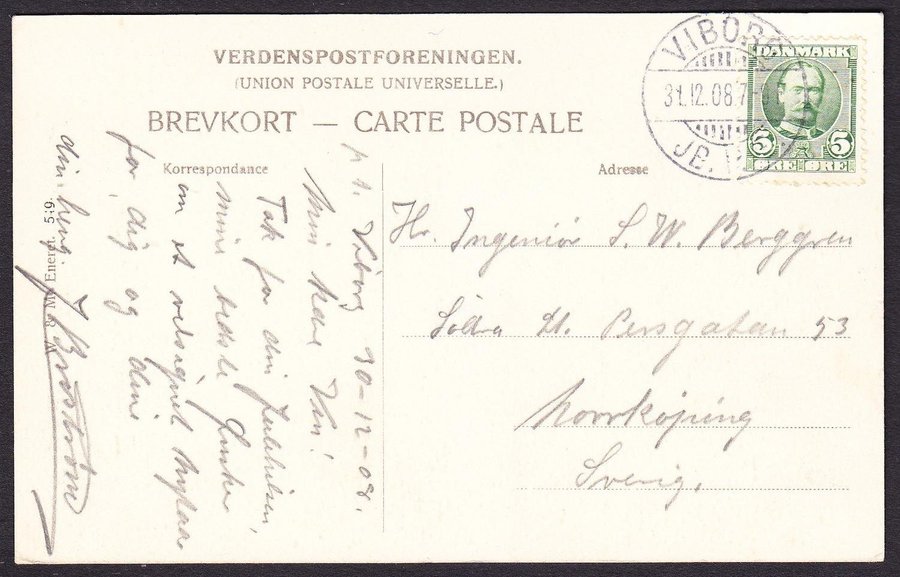 VERDENSPOSTFORENINGEN.
(UNION POSTALE UNIVERSELLE.)
BREVKORT — CARTE POSTALE
VIBORG
31.12.08.7-
JB. P.
DANMARK
5 5
ØRE ØRE
Korrespondance
Adresse
Viborg 30-12-08.
Min kære Ven!
Tak for din julehilsen,
mine bedste ønsker
om et velsignet nytaar
for dig og dine
din heng.
J Broström
Energi. 5:9.
Hr. Ingeniör S. W. Berggren
Södra St. Persgatan 53
Norrköping
Sverig.